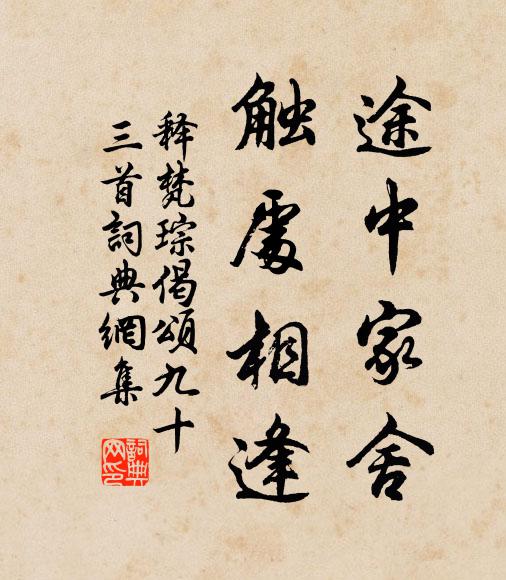 途中家舍
触處相逢
释梵琮偈頌九十
三首詞典網集
詞典
网印